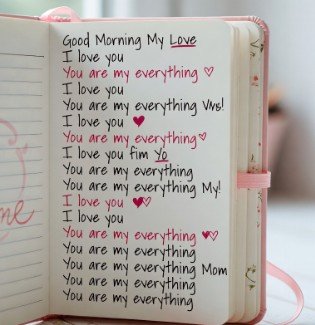 Good Morning My Love
I love you
You are my everything ♡
I love you
You are my everything Vms!
I love you ♥
You are my everything ♡
I love you fim Yo
You are my everything
You are my everything My!
I love you ♥♡
I love you
You are my everything ♥♡
You are my everything
You are my everything Mom
You are my everything
You are my everything
me